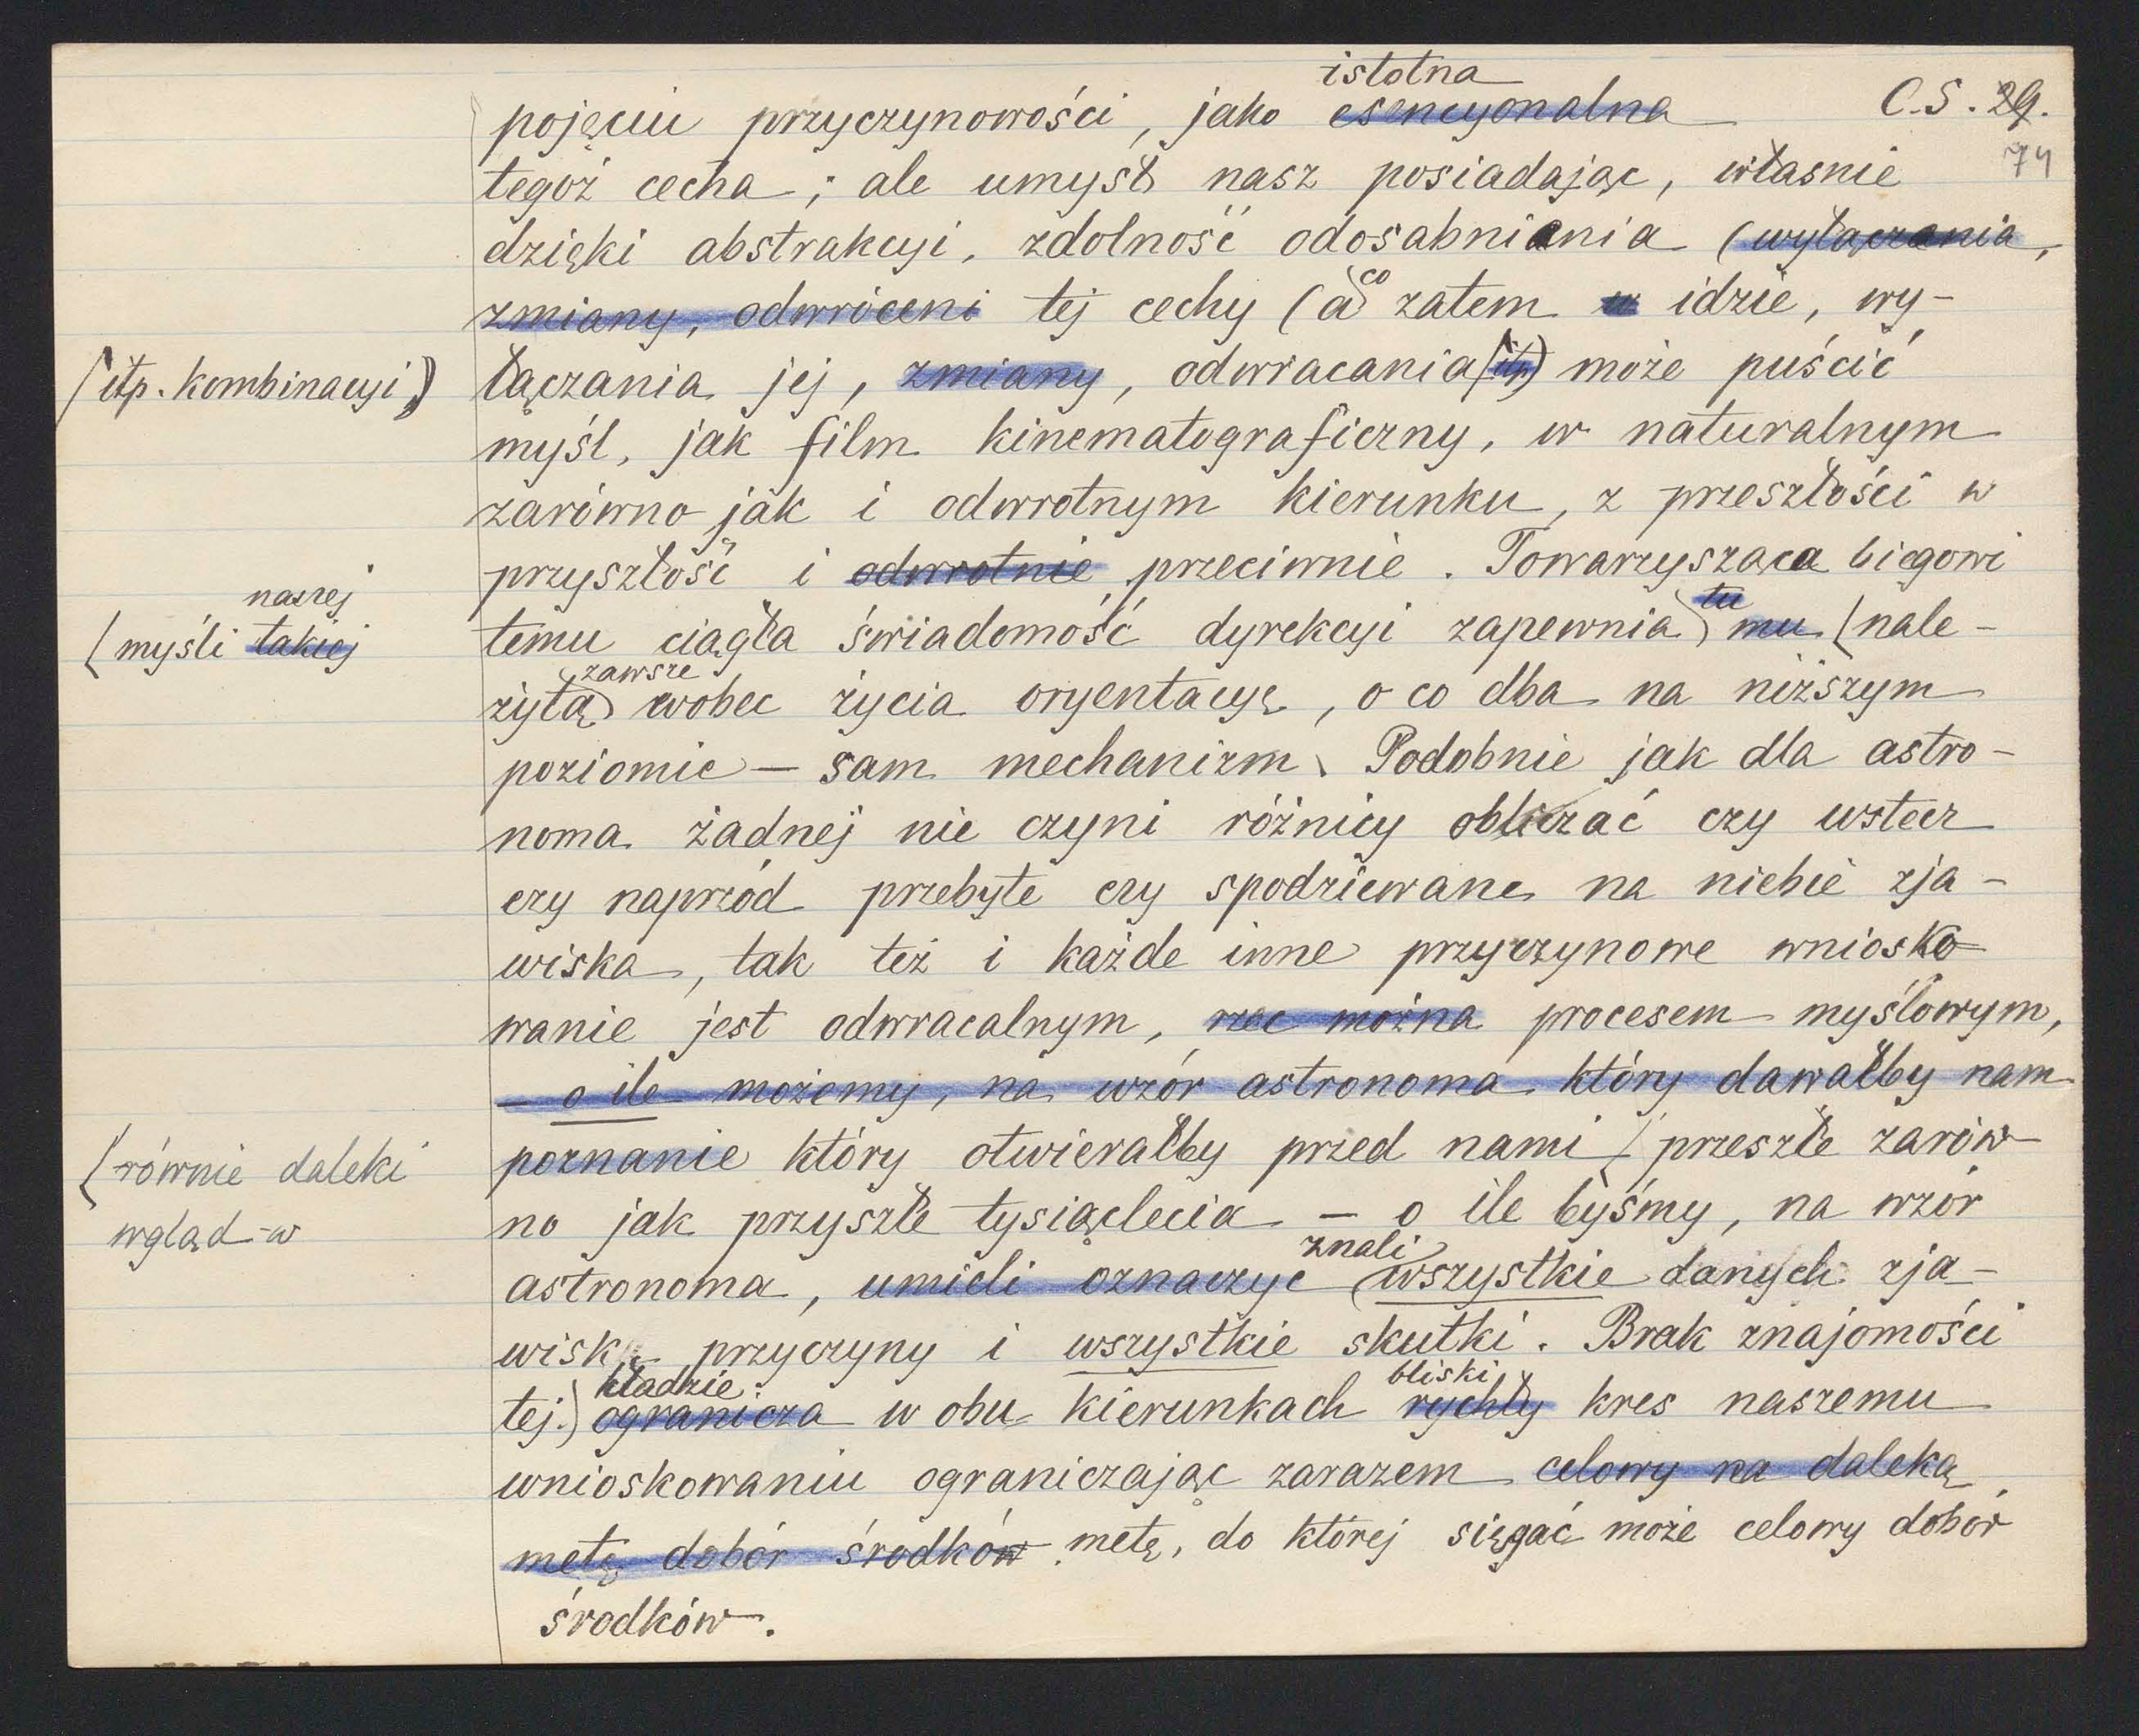 istotna
pojęciu przyczynowości, jako esencyonalna C.S. 29.
74
tegoż cecha; ale umysł nasz posiadając, własnie
dzięki abstrakcyi, zdolność odosabniania (wyłączania,
zmiany, odwróceni tej cechy (a co zatem w idzie, wy-
(itp. kombinacyi) łączania jej, zmiany, odwracania (itp) może puścić
myśl, jak film kinematograficzny, w naturalnym
zarówno jak i odwrotnym kierunku, z przeszłości w
przyszłość i odwrotnie przeciwnie. Towarzysząca biegowi
naszej
(myśli takiej temu ciągła świadomość dyrekcyi zapewnia tu mu (nale-
zawsze
żytą wobec życia oryentacyę, o co dba na niższym
poziomie — sam mechanizm. Podobnie jak dla astro-
noma żadnej nie czyni różnicy obliczać czy wstecz
czy naprzód przebyte czy spodziewane na niebie zja-
wiska, tak też i każde inne przyczynowe wniosko
wanie jest odwracalnym, rzec można procesem myślowym,
— o ile możemy, na wzór astronoma który dawałby nam
poznanie który otwierałby przed nami / przeszłe zarów
(równie daleki
wgląd w
no jak przyszłe tysiąclecia — o ile byśmy, na wzór
znali
astronoma, umieli oznaczyć wszystkie danych zja-
wisk przyczyny i wszystkie skutki. Brak znajomości
kładzie bliski
tej) ogranicza w obu kierunkach rychły kres naszemu
wnioskowaniu ograniczając zarazem celowy na daleką
metę dobór środków metę, do której sięgać może celowy dobór
środków.